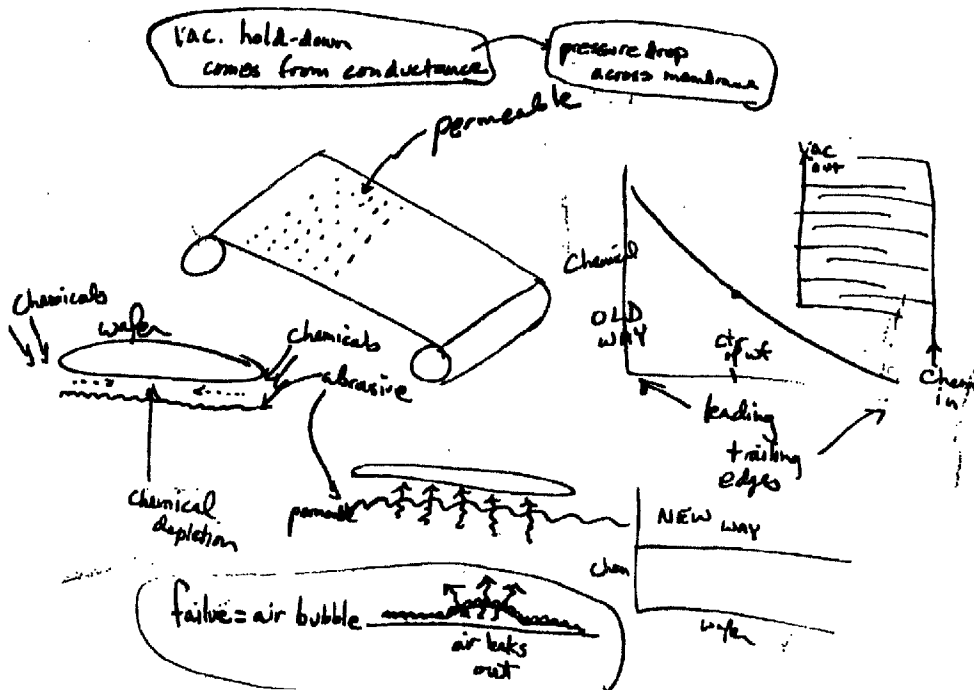 Vac. hold-down
comes from conductance
pressure drop
across membrane
permeable
Vac
out
Chemical
OLD
WAY
ct of wf
Chem
in
leading
trailing
edges
Chemicals
wafer
Chemicals
abrasive
chemical
depletion
NEW WAY
chem
wafer
failure = air bubble
air leaks
out